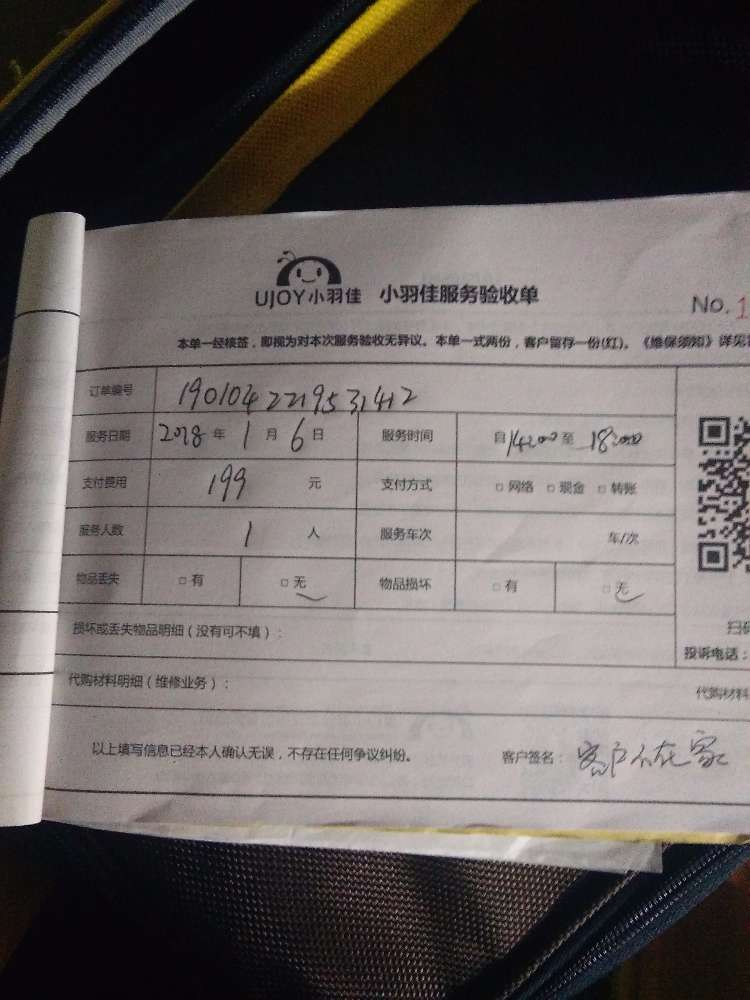 UJOY小羽佳 小羽佳服务验收单
No.1
本单一经核签，即视为对本次服务验收无异议。本单一式两份，客户留存一份(红)。《维保须知》详见
订单编号 190104221953142
服务日期 2018年1月6日 服务时间 自14:00至18:00
支付费用 199元 支付方式 □网络 □现金 □转账
服务人数 1人 服务车次 车/次
物品丢失 □有 □无 物品损坏 □有 □无
损坏或丢失物品明细（没有可不填）：
扫码
投诉电话：
代购材料明细（维修业务）：
代购材料
以上填写信息已经本人确认无误，不存在任何争议纠纷。 客户签名：客户不在家